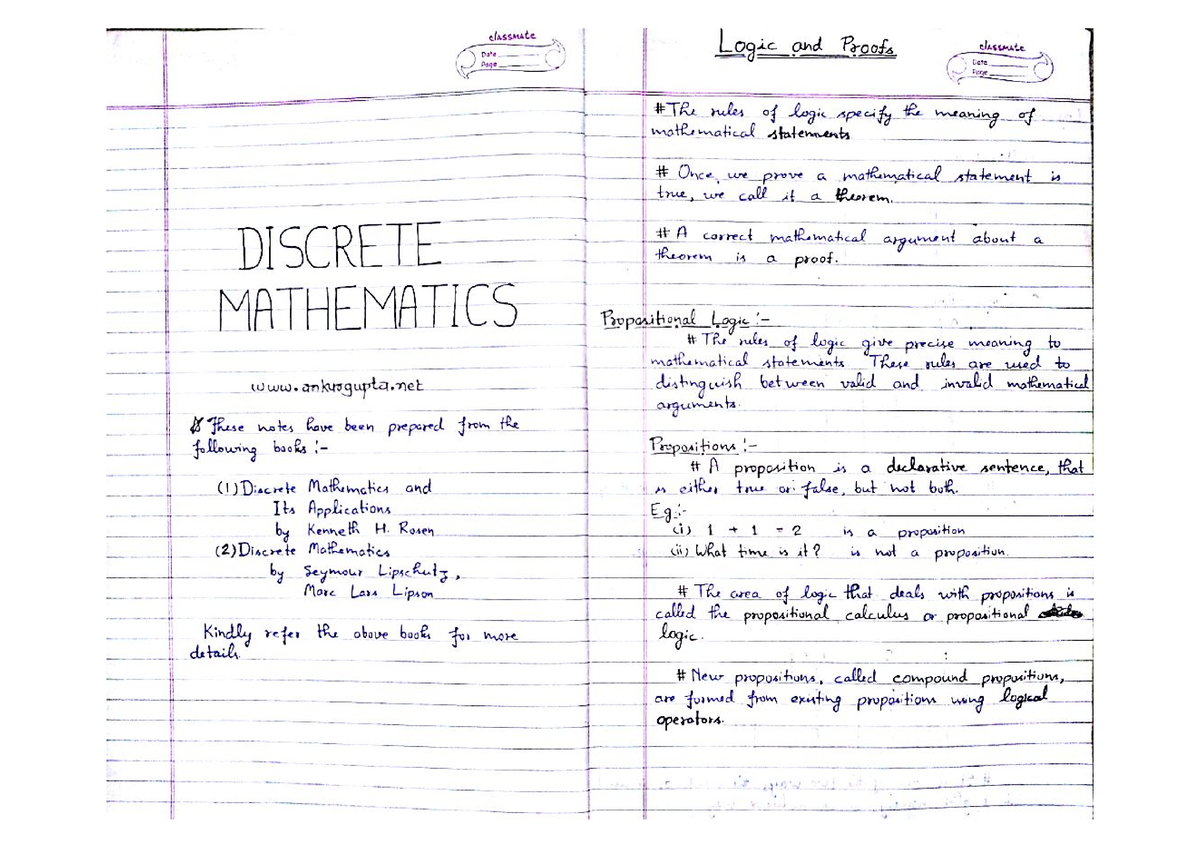 classmate
Date
Page
DISCRETE
MATHEMATICS
www.ankurgupta.net
These notes have been prepared from the
following books :-
(1) Discrete Mathematics and
Its Applications
by Kenneth H. Rosen
(2) Discrete Mathematics
by Seymour Lipschutz,
Marc Lars Lipson
Kindly refer the above books for more
details.
Logic and Proofs
classmate
Date
Page
# The rules of logic specify the meaning of
mathematical statements
# Once, we prove a mathematical statement is
true, we call it a theorem.
# A correct mathematical argument about a
theorem is a proof.
Propositional Logic :-
# The rules of logic give precise meaning to
mathematical statements. These rules are used to
distinguish between valid and invalid mathematical
arguments.
Propositions :-
# A proposition is a declarative sentence, that
is either true or false, but not both.
Eg :-
(i) 1 + 1 = 2 is a proposition
(ii) What time is it? is not a proposition.
# The area of logic that deals with propositions is
called the propositional calculus or propositional
logic.
# New propositions, called compound propositions,
are formed from existing propositions using logical
operators.